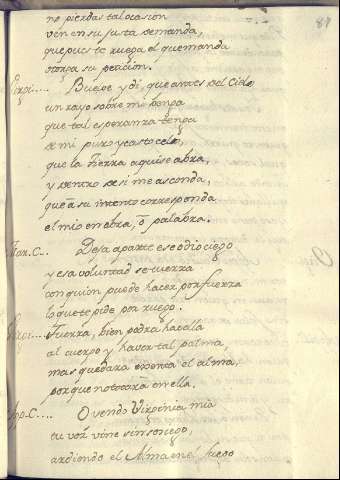 81
no pierdas tal ocasion
ven en su justa demanda,
que pues te ruega el que manda
otorga su peticion.
Virgi.... Buelbe y di, que antes del Cielo
un rayo sobre mi benga
que tal esperanza tenga
de mi puro y casto celo,
que la tierra aqui se abra,
y dentro de si me asconda,
que à su intento corresponda
el mio en obra, ò palabra.
Mar. C... Dexa aparte ese odio ciego
y esa voluntad se tuerza
con quien puede hacer por fuerza
lo que te pide por ruego.
Virgi... Fuerza, bien podra hacella
al cuerpo y haver tal palma,
mas quedará esenta el alma,
porque no tocará en ella.
Apo. C.... Oyendo Virginia mia
tu voz vine sin sosiego,
ardiendo el Alma en el fuego